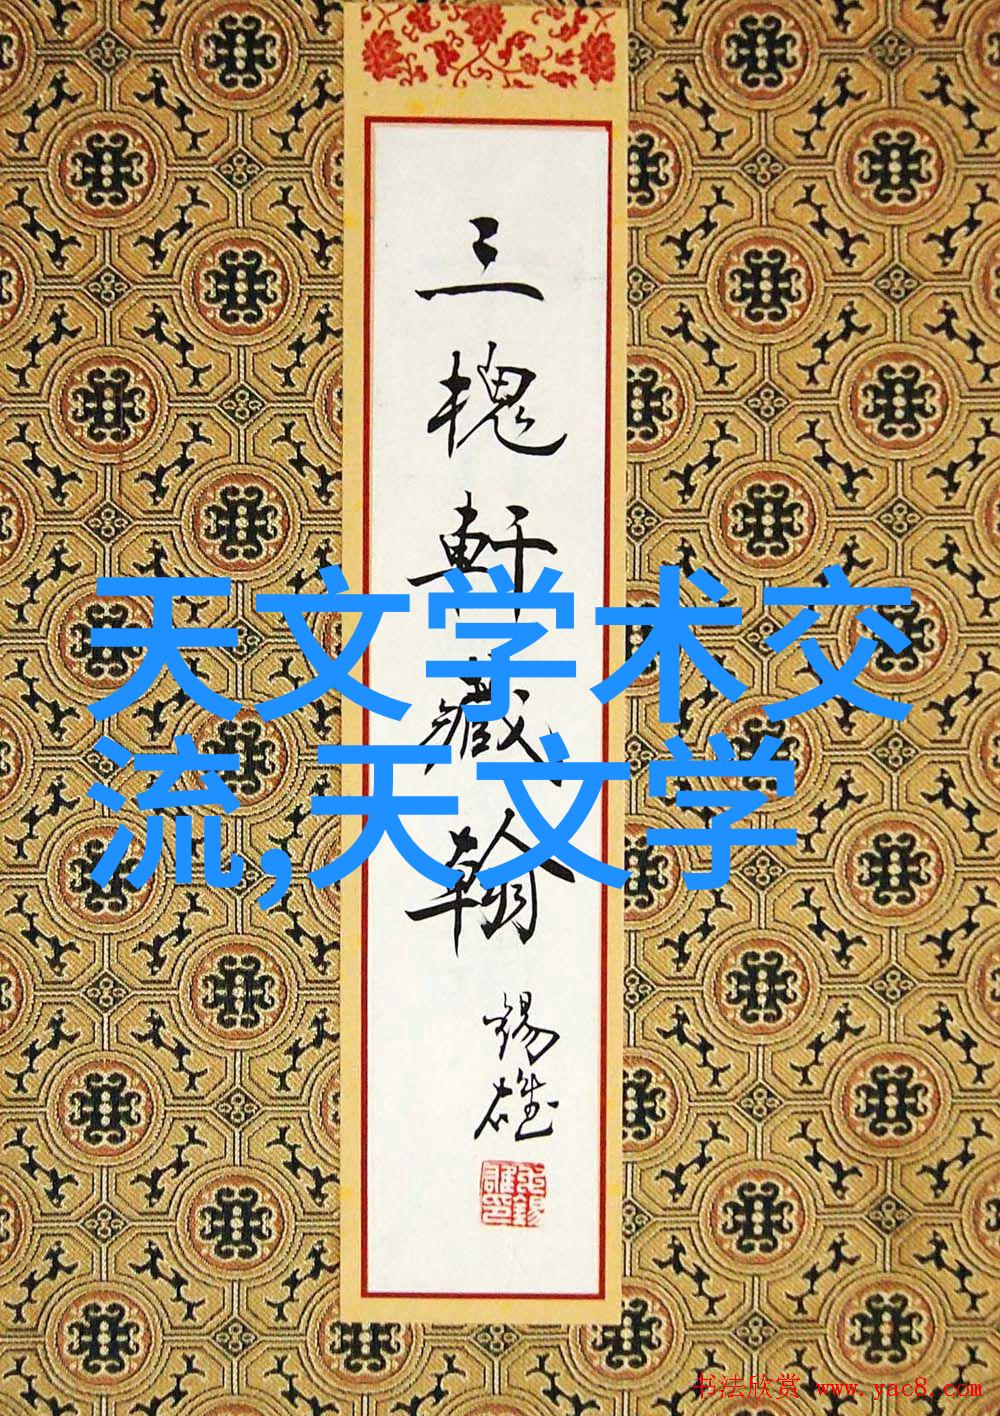 三槐軒藏翰
锡雄
天文学术交
流,天文学
书法欣赏 www.yac8.com